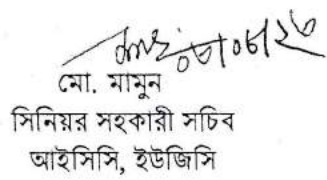 ০৬/০৮/২৩
মো. মামুন
সিনিয়র সহকারী সচিব
আইসিসি, ইউজিসি